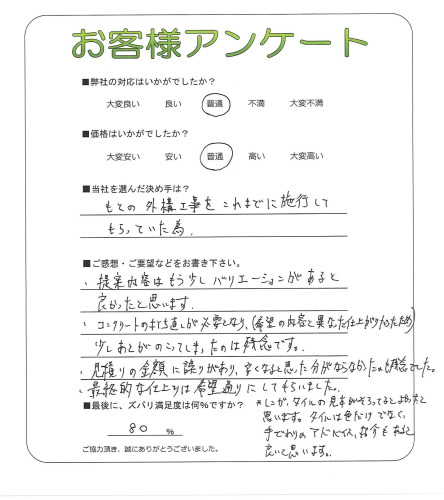 お客様アンケート
■弊社の対応はいかがでしたか?
大変良い 良い 普通 不満 大変不満
■価格はいかがでしたか?
大変安い 安い 普通 高い 大変高い
■当社を選んだ決め手は?
もとの外構工事をこれまでに施行して
もらっていた為.
■ご感想・ご要望などをお書き下さい。
・提案内容はもう少しバリエーションがあると
良かったと思います.
・コンクリートの打ち直しが必要となり、(希望の内容と異なった仕上がりだったため)
少しあとがのこってしまったのは残念です。
・見積りの金額に誤りがあり、安くなると思った分がならなかったのも残念でした。
・最終的な仕上りは希望通りにしてもらいました。
■最後に、ズバリ満足度は何%ですか?
80 %
ご協力頂き、誠にありがとうございました。
*レンガ、タイルの見本がそろってるとよかったと
思います。タイルは色だけでなく、
手ざわりのアドバイス、紹介もあると
良いと思います。